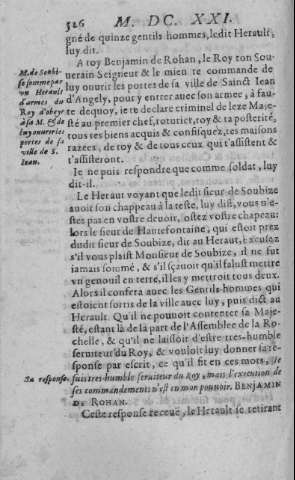 526 M. DC. XXI.
gné de quinze gentils hommes, ledit Herault,
luy dit.
A toy Benjamin de Rohan, le Roy ton Sou-
M. de Soubi-
se sommé par
vn Herault
d'armes du
Roy d'obeyr
à sa M. & de
luy ouurir les
portes de sa
ville de S.
Iean.
uerain Seigneur & le mien te commande de
luy ouurir les portes de sa ville de Sainct Iean
d'Angely, pour y entrer auec son armee, à fau-
te dequoy, ie te declare criminel de leze Maje-
sté au premier chef, roturier, toy & ta posterité,
tous tes biens acquis & confisquez, tes maisons
razées, de toy & de tous ceux qui t'assistent &
t'assisteront.
Ie ne puis respondre que comme soldat, luy
dit-il.
Le Heraut voyant que ledit sieur de Soubize
auoit son chappeau à la teste, luy dist, vous n'e-
stes pas en vostre deuoir, ostez vostre chapeau:
lors le sieur de Hautefontaine, qui estoit prez
dudit sieur de Soubize, dit au Heraut, Excusez
s'il vous plaist Monsieur de Soubize, il ne fut
iamais sommé, & s'il sçauoit qu'il falust mettre
vn genouil en terre, il les y mettroit tous deux.
Alors il confera auec les Gentils-hommes qui
estoient sortis de la ville auec luy, puis dict au
Herault. Qu'il ne pouuoit contenter sa Maje-
sté, estant là de la part de l'Assemblee de la Ro-
chelle, & qu'il ne laissoit d'estre tres-humble
seruiteur du Roy, & vouloit luy donner la re-
sponse par escrit, ce qu'il fit en ces mots, Ie
Sa response. suis tres-humble seruiteur du Roy, mais l'execution de
ses commandements n'est en mon pouuoir. BENJAMIN
DE ROHAN.
Ceste response receuë, le Herault se retirant